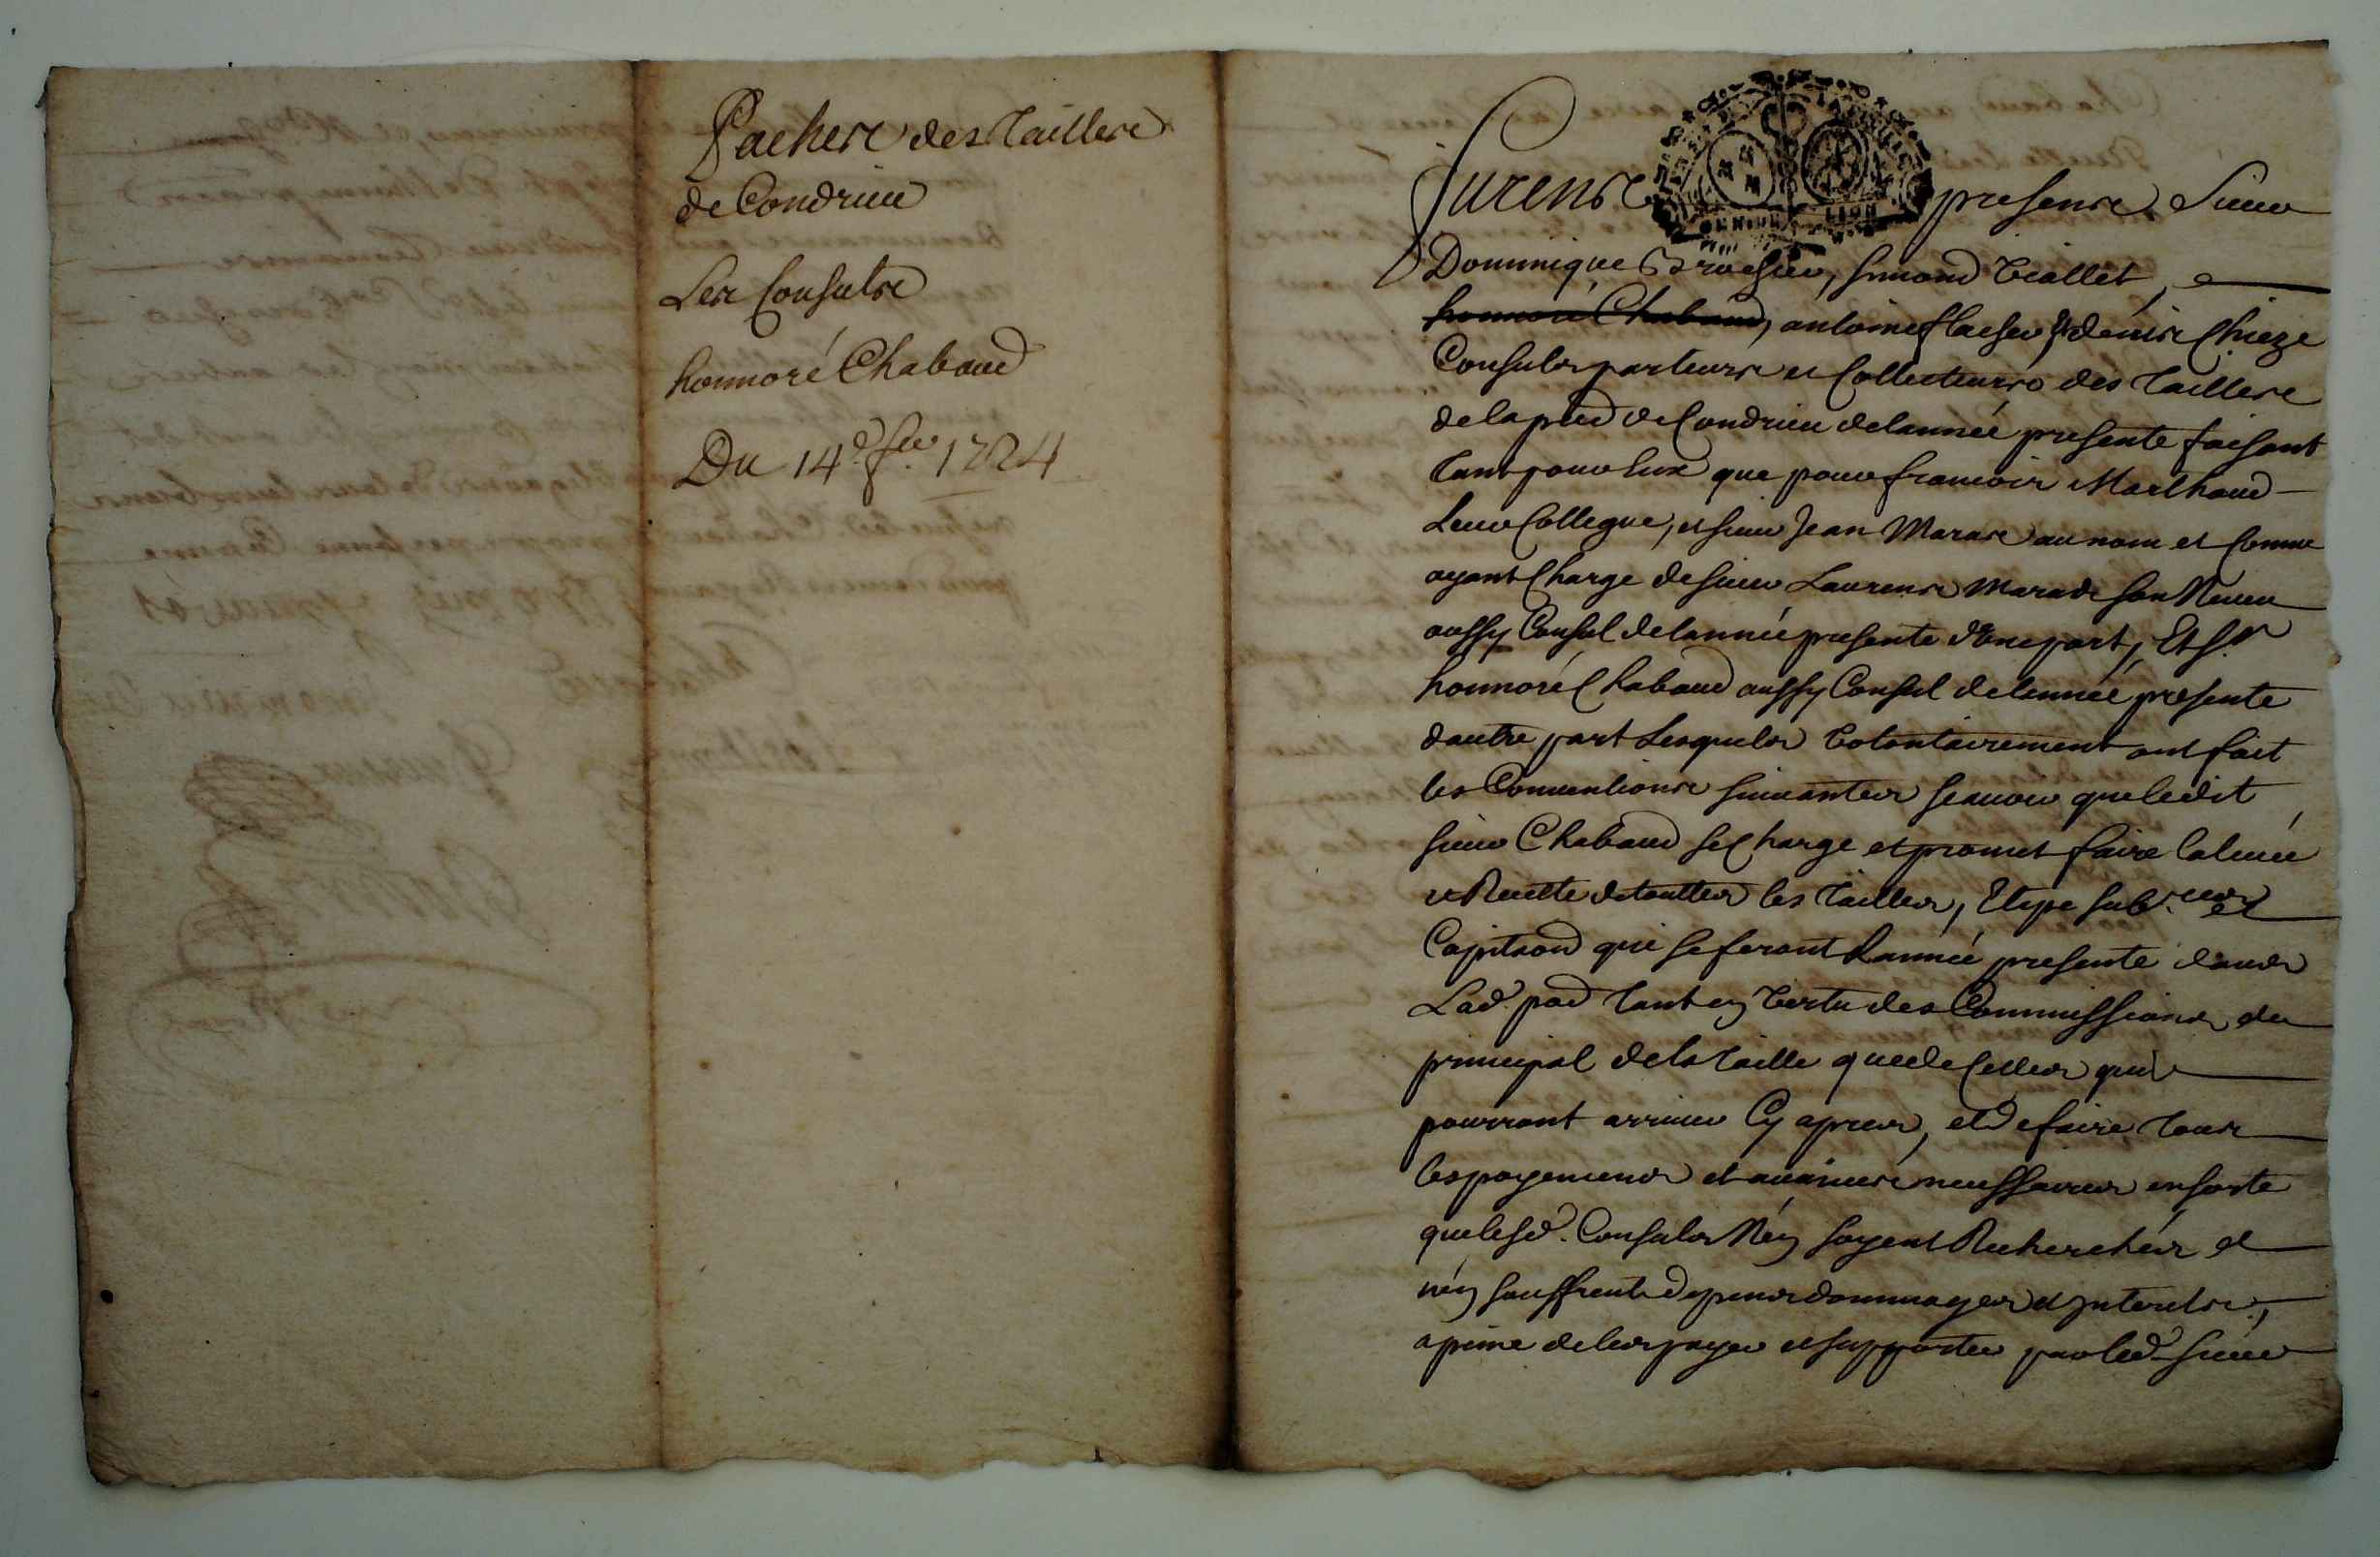 Pachere des Taillere
de Condrieu
Les Consulse
honnoré Chabaud
Du 14.e fer 1724
furense presense Sieur
Dominique Brochier, simond Viallet, e
honnoré Chabaud, antoine flacher & denis Chieze
Consulz porteurs et Collecteurs des Tailles
de la pnd de Condrieu de lannée presente faisant
tant pour Eux que pour francois Marthoud
Leur Collegue, et sieur Jean Maras au nom et Comme
ayant Charge de sieur Laurens Maras son Neveu
aussy Consul de lannée presente d'une part, Et Sr
honnoré Chabaud aussy Consul de lannée presente
dautre part Lesquels volontairement ont fait
les Conventions suivantes scavoir que ledit
sieur Chabaud se Charge et promet faire la levée
et Recette de touttes les Tailles, Etape et
Capitaon qui se feront L'année presente dans
Lad. tant en vertu des Commissions du
principal de la taille que de Celles qui
pourront arriver Cy apres, et de faire tous
les payements et avances necessaires en sorte
que lesd. Consuls n'en soyent Recherchés et
n'en souffrent depens dommages et Interets,
a peine de les payer et supporter par led. sieur
OMNIUM LION